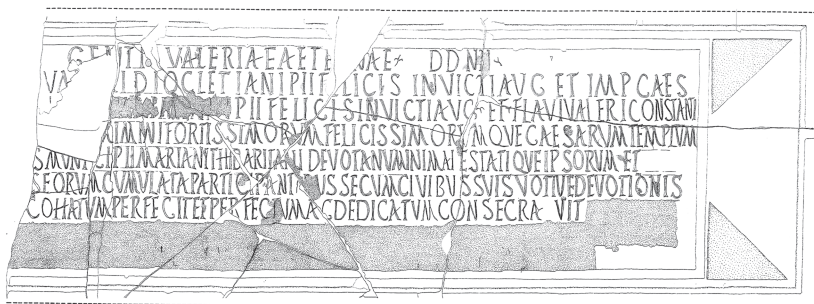 GENTI VALERIAE AETE NAE DD NN
DIOCLETIANI PII FELICIS INVICTI AVG ET IMP CAES
PII FELICIS INVICTI AVG ET FLAVI VALERI CONSTANTI
FORTISSIMORVM FELICISSIMORVMQVE CAESARVM TEMPLVM
S MVNICIPII MARIANI THIBARITANI DEVOTA NVMINI MAIESTATIQVE IPSORVM ET
SEORVM CVMVLATA PARTICIPANTIBVS SECVM CIVIBVS SVIS VOTIVE DEVOTIONIS
COHATVM PERFECIT ET PERFECTVM AC DEDICATVM CONSECRAVIT